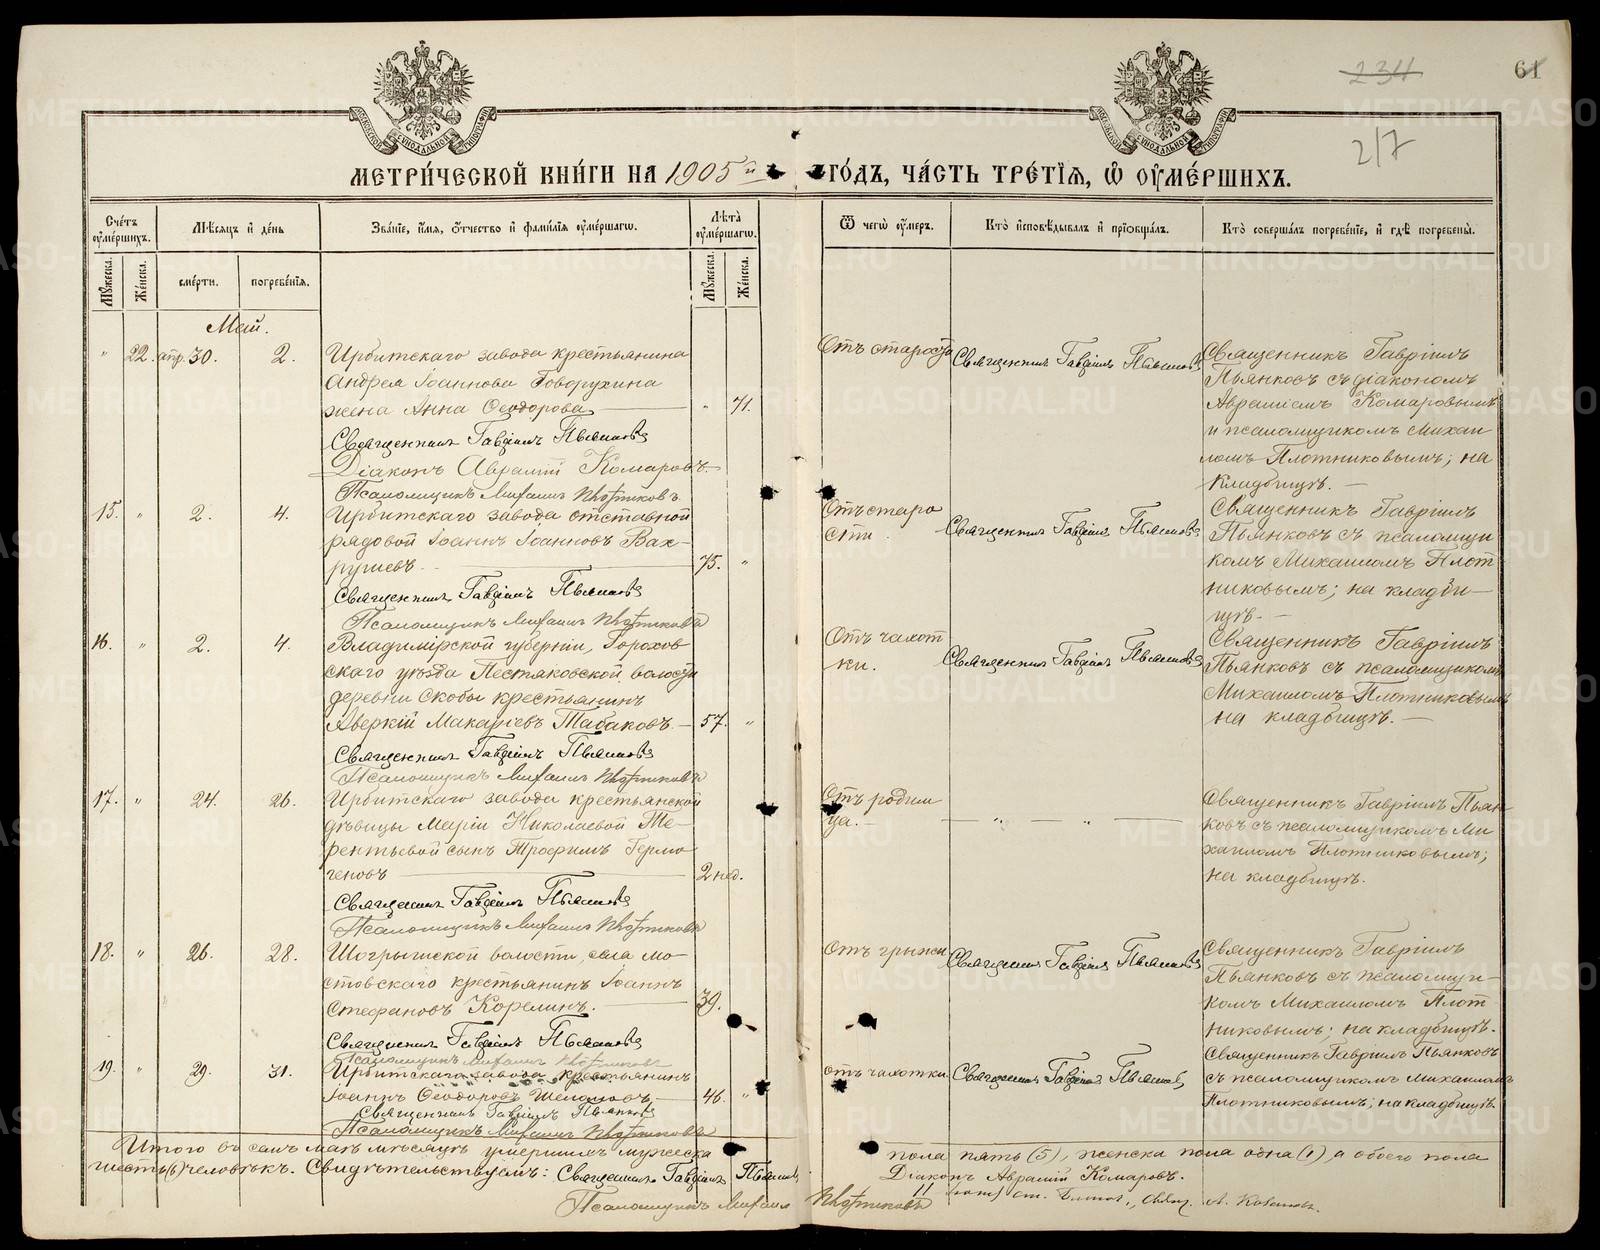 234
61
217
МЕТРИ́ЧЕСКОЙ КНИ́ГИ НА 1905й ГО́ДЪ, ЧА́СТЬ ТРЕ́ТІѦ, Ѡ ОУМЕ́РШИХЪ.
Сче́тъ оуме́ршихъ.
Мѣ́сѧцъ и де́нь
Зва́нїе, и́мѧ, о́тчество и фами́лїѧ оуме́ршагѡ.
Лѣ́та оуме́ршагѡ.
Ѿ чегѡ̀ оу́меръ.
Кто̀ исповѣ́дывалъ и прїѡбща́лъ.
Кто̀ соверша́лъ погребе́нїе, и гдѣ̀ погребены̀.
Мꙋ́жеска.
Же́нска.
сме́рти.
погребе́нїѧ.
Мꙋ́жеска.
Же́нска.
Май.
" 22. апр. 30. 2.
Ирбитскаго завода крестьянина
Андрея Іоаннова Говорухина
жена Анна Ѳеодорова " 71.
Священникъ Гавріилъ Пьянковъ
Діаконъ Авраамій Комаровъ
Псаломщикъ Михаилъ Плотниковъ
Отъ старости
Священникъ Гавріилъ Пьянковъ
Священникъ Гавріилъ
Пьянковъ съ діакономъ
Авраміемъ Комаровымъ
и псаломщикомъ Михаи
ломъ Плотниковымъ; на
кладбищѣ.
15. " 2. 4.
Ирбитскаго завода отставной
рядовой Іоаннъ Іоанновъ Вах-
рушевъ 75. "
Священникъ Гавріилъ Пьянковъ
Псаломщикъ Михаилъ Плотниковъ
Отъ старо
сти
Священникъ Гавріилъ Пьянковъ
Священникъ Гавріилъ
Пьянковъ съ псаломщи
комъ Михаиломъ Плот
никовымъ; на кладби-
щѣ.
16. " 2. 4.
Владимірской губерніи, Горохов
скаго уѣзда Пестяковской волости
деревни Скобы крестьянинъ
Аверкій Макаріевъ Табаковъ 57. "
Священникъ Гавріилъ Пьянковъ
Псаломщикъ Михаилъ Плотниковъ
Отъ чахот
ки.
Священникъ Гавріилъ Пьянковъ
Священникъ Гавріилъ
Пьянковъ съ псаломщикомъ
Михаиломъ Плотниковымъ
на кладбищѣ.
17. " 24. 26.
Ирбитскаго завода крестьянской
дѣвицы Маріи Николаевой Те-
рентьевой сынъ Трофимъ Гермо
геновъ 2 нед.
Священникъ Гавріилъ Пьянковъ
Псаломщикъ Михаилъ Плотниковъ
Отъ родим
ца.
" "
Священникъ Гавріилъ Пьян
ковъ съ псаломщикомъ Ми
хаиломъ Плотниковымъ;
на кладбищѣ.
18. " 26. 28.
Шогрышской волости, села Мо
стовскаго крестьянинъ Іоаннъ
Стефановъ Корелинъ. 39.
Священникъ Гавріилъ Пьянковъ
Псаломщикъ Михаилъ Плотниковъ
Отъ грыжи
Священникъ Гавріилъ Пьянковъ
Священникъ Гавріилъ
Пьянковъ съ псаломщи-
комъ Михаиломъ Плот
никовымъ; на кладбищѣ.
19. " 29. 31.
Ирбитскаго завода крестьянинъ
Іоаннъ Ѳеодоровъ 46. "
Священникъ Гавріилъ Пьянковъ
Псаломщикъ Михаилъ Плотниковъ
Отъ чахотки.
Священникъ Гавріилъ Пьянковъ
Священникъ Гавріилъ Пьянковъ
съ псаломщикомъ Михаиломъ
Плотниковымъ; на кладбищѣ.
Итого въ семъ маѣ мѣсяцѣ умершихъ мужеска пола пять (5), женска пола одна (1), а обоего пола
шесть (6) человѣкъ. Свидѣтельствуемъ: Священникъ Гавріилъ Пьянковъ
Діаконъ Авраамій Комаровъ.
Псаломщикъ Михаилъ Плотниковъ
METRIKI.GASO-URAL.RU